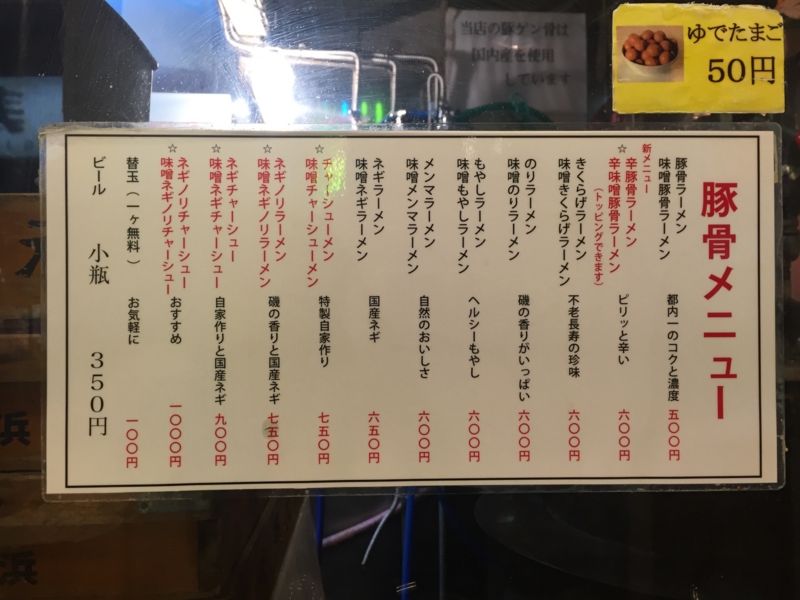 当店の豚ゲン骨は
国内産を使用
しています
ゆでたまご
50円
豚骨メニュー
豚骨ラーメン
味噌豚骨ラーメン
都内一のコクと濃度
五〇〇円
新メニュー
☆辛豚骨ラーメン
辛味噌豚骨ラーメン
(トッピングできます)
ピリッと辛い
六〇〇円
きくらげラーメン
味噌きくらげラーメン
不老長寿の珍味
六〇〇円
のりラーメン
味噌のりラーメン
磯の香りがいっぱい
六〇〇円
もやしラーメン
味噌もやしラーメン
ヘルシーもやし
六〇〇円
メンマラーメン
味噌メンマラーメン
自然のおいしさ
六〇〇円
ネギラーメン
味噌ネギラーメン
国産ネギ
六五〇円
☆チャーシューメン
味噌チャーシューメン
特製自家作り
七五〇円
☆ネギノリラーメン
味噌ネギノリラーメン
磯の香りと国産ネギ
七五〇円
☆ネギチャーシュー
味噌ネギチャーシュー
自家作りと国産ネギ
九〇〇円
☆ネギノリチャーシュー
味噌ネギノリチャーシュー
おすすめ
一〇〇〇円
替玉(一ヶ無料)
お気軽に
一〇〇円
ビール 小瓶 350円
浜
浜